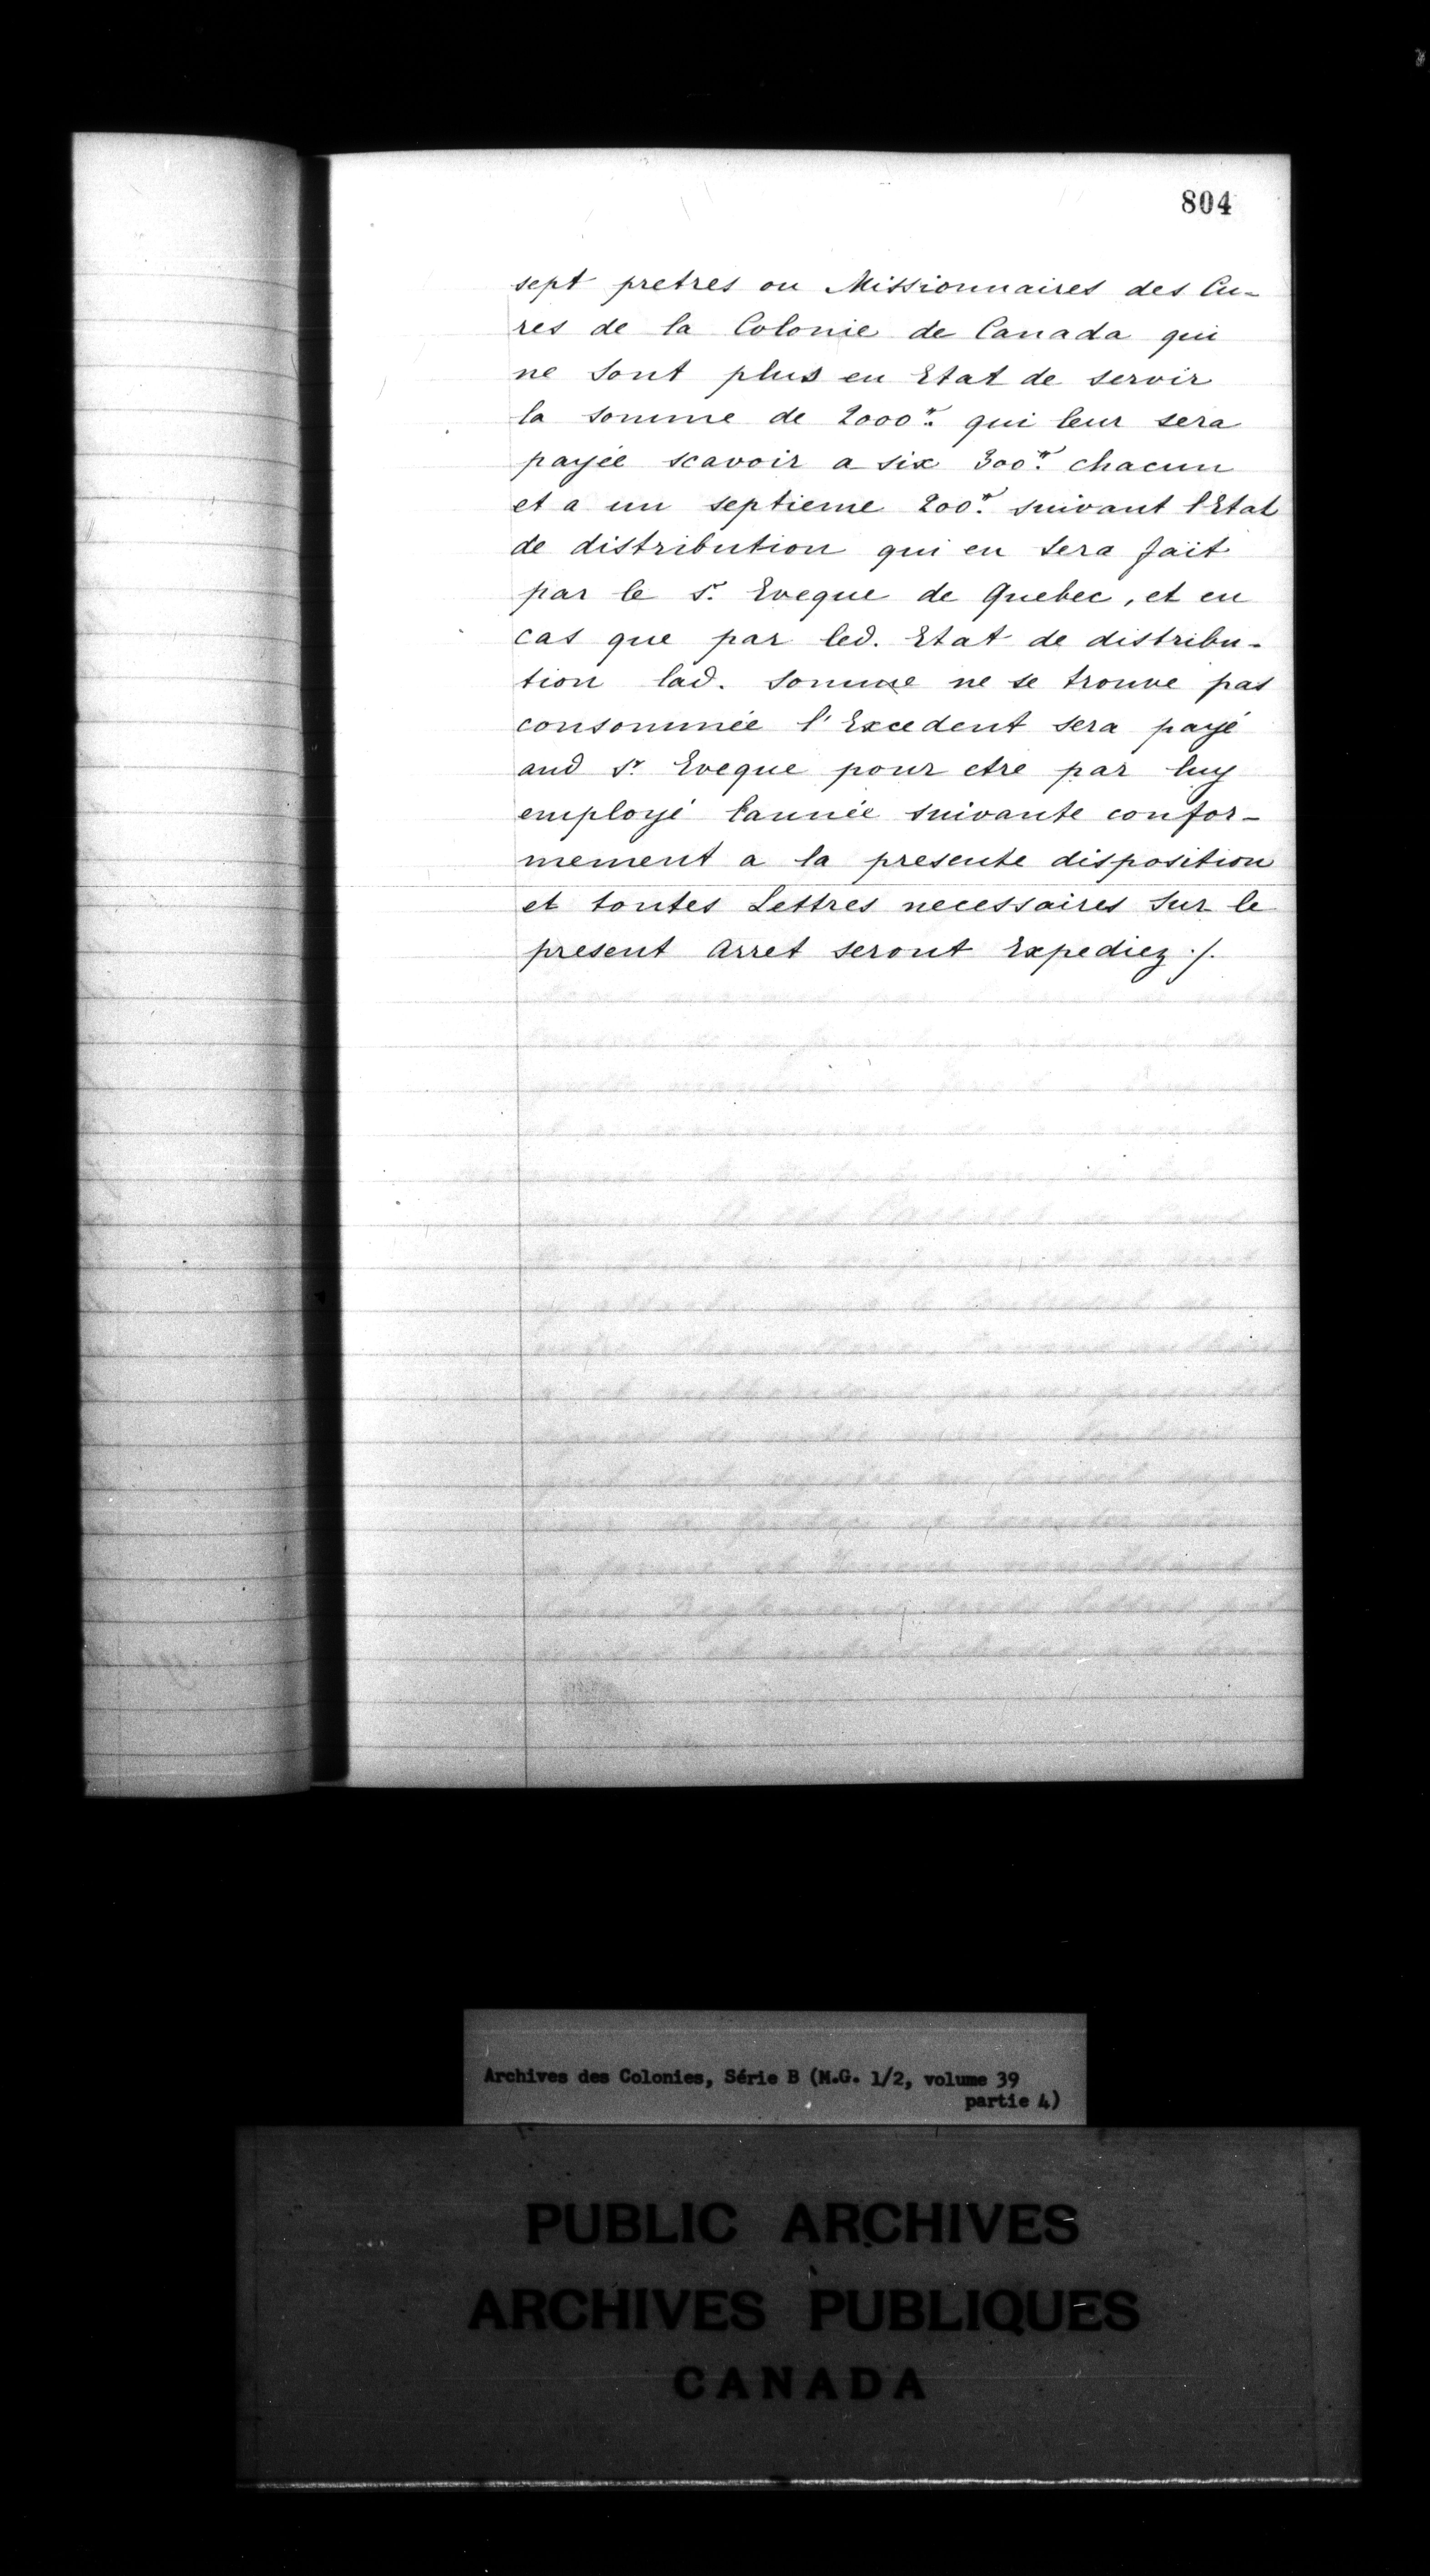 804
sept pretres ou Missionnaires des Cu-
res de la Colonie de Canada qui
ne sont plus en Etat de servir
la somme de 2000# qui leur sera
payée scavoir a six 300# chacun
et a un septieme 200# suivant l'Etat
de distribution qui en sera fait
par le Sr. Eveque de Quebec, et en
cas que par led. Etat de distribu-
tion lad. somme ne se trouve pas
consommée l'Excedent sera payé
aud Sr. Eveque pour etre par luy
employé l'année suivante confor-
mement a la presente disposition
et toutes Lettres necessaires sur le
present Arret seront Expediez ./.
Archives des Colonies, Série B (M.G. 1/2, volume 39
partie 4)
PUBLIC ARCHIVES
ARCHIVES PUBLIQUES
CANADA